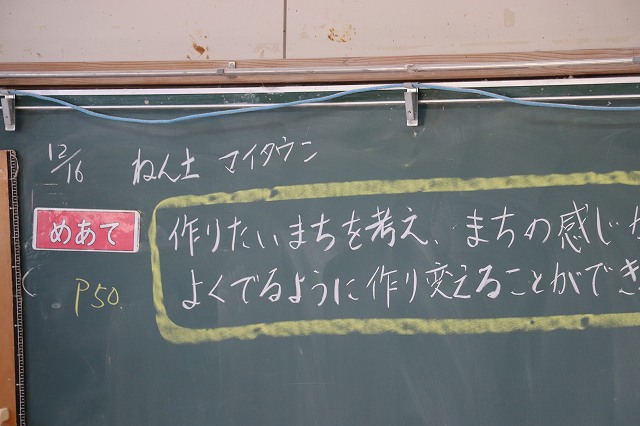 12/16 ねん土 マイタウン
めあて
作りたいまちを考え、まちの感じ
よくでるように作り変えることができ
P50